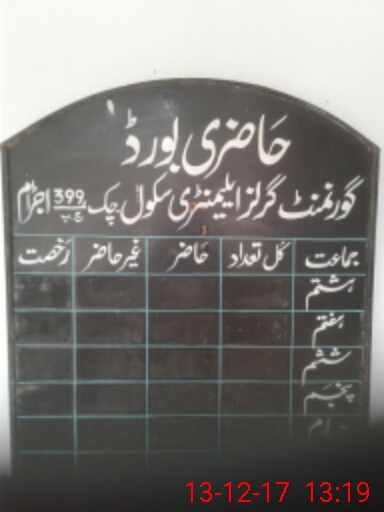 حاضری بورڈ
گورنمنٹ گرلز ایلیمنٹری سکول چک 399 ج.ب
جماعت کل تعداد حاضر غیر حاضر رخصت
ہشتم
ہفتم
ششم
پنجم
13-12-17 13:19